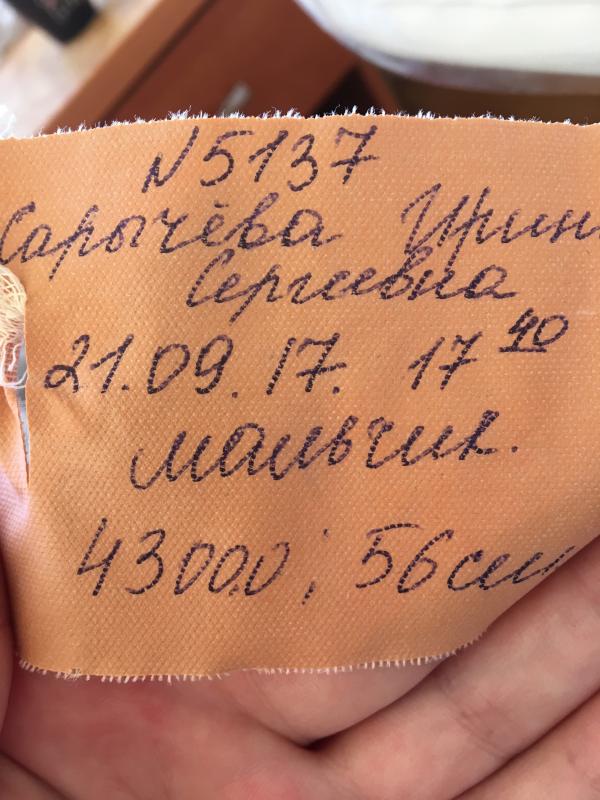 N5137
Сарычёва Ирин
Сергеевна
21.09.17. 17 40
мальчик.
4300,0; 56см